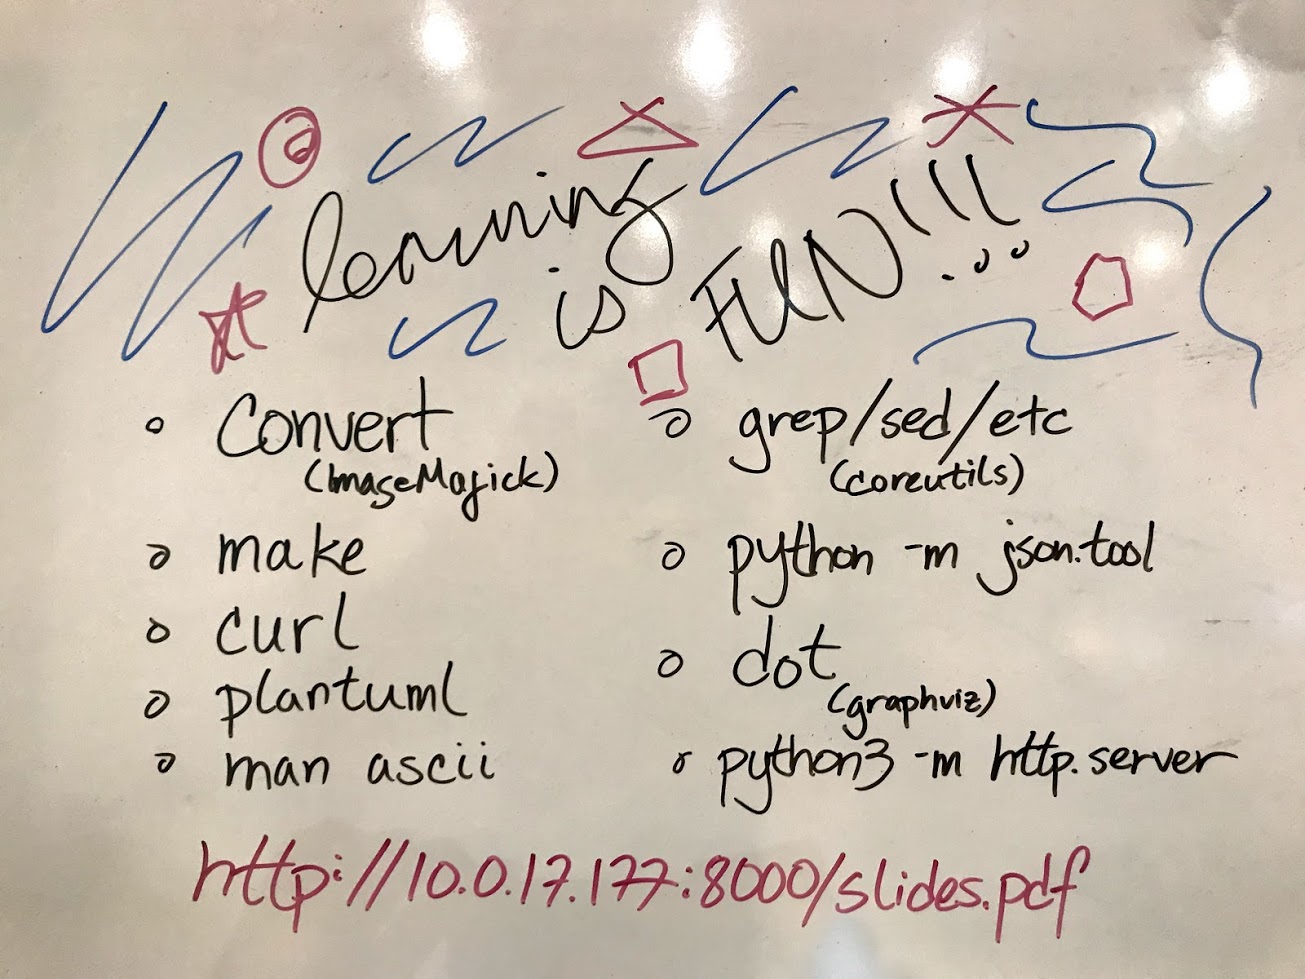 learning
is FUN!!!...
convert
(ImageMagick)
make
curl
plantuml
man ascii
grep/sed/etc
(coreutils)
python -m json.tool
dot
(graphviz)
python3 -m http.server
http://10.0.17.177:8000/slides.pdf